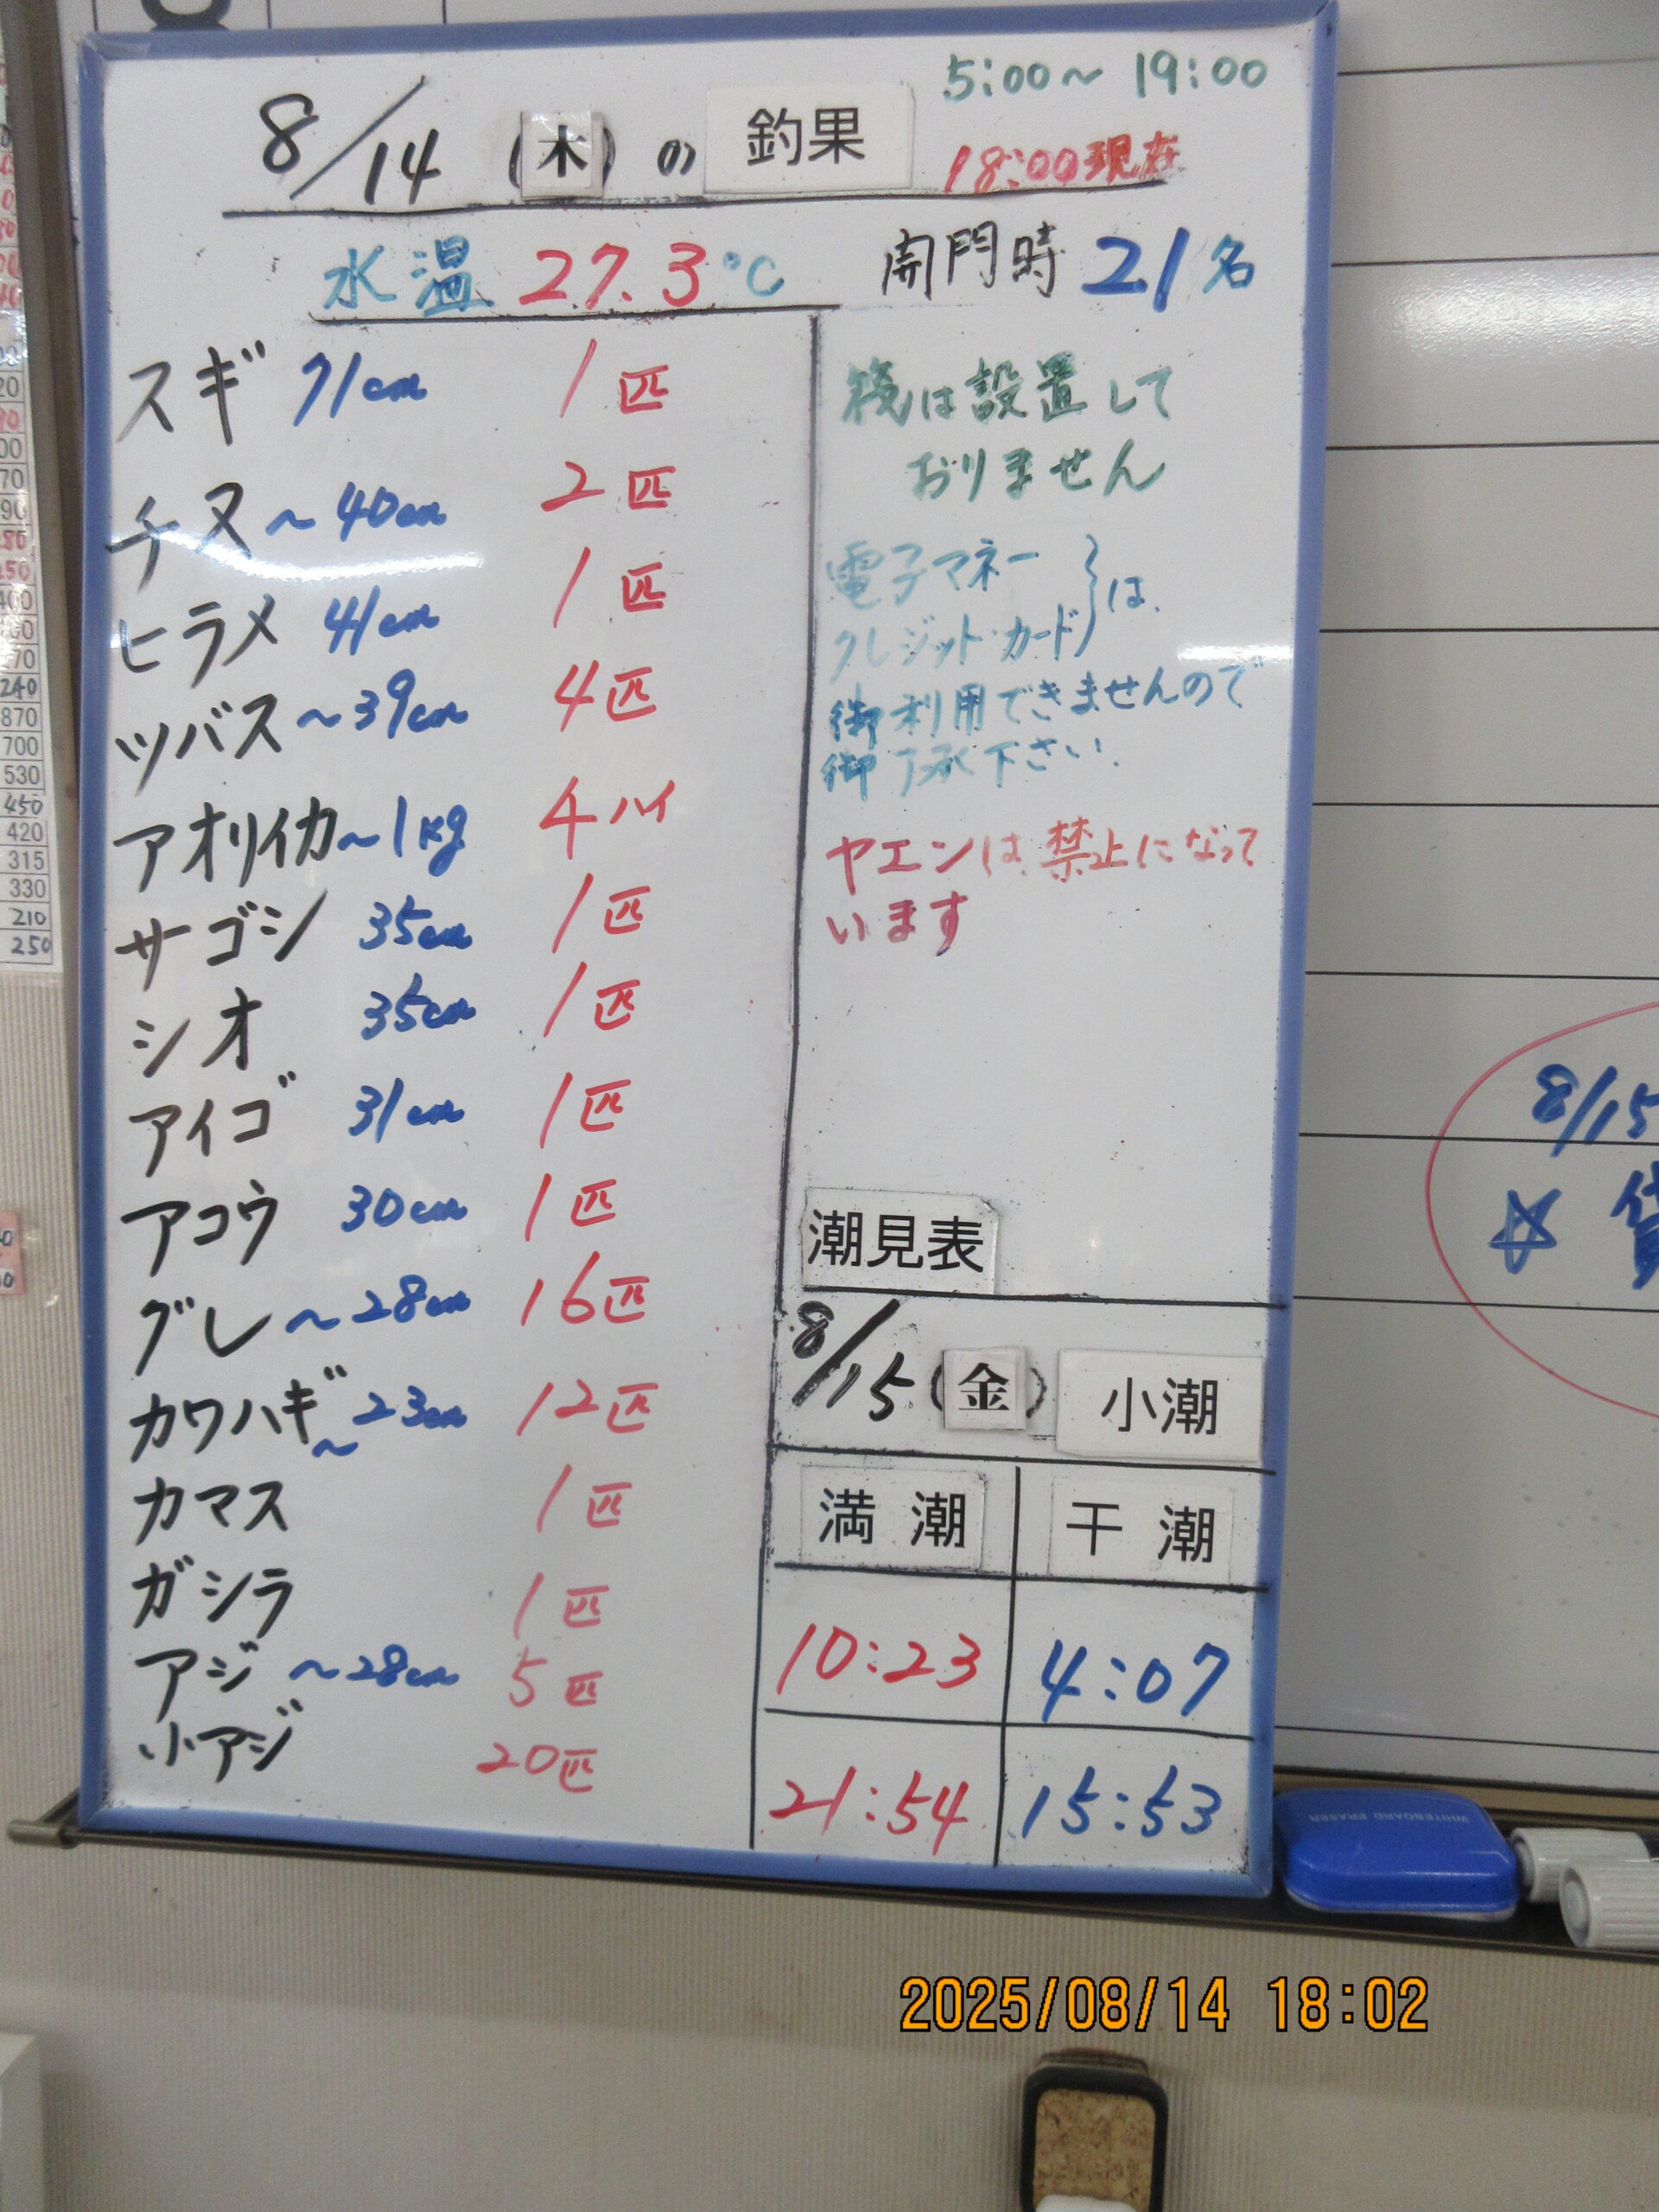 8/14 (木) の 釣果
5:00～19:00
18:00現在
水温 27.3℃
開門時 21名
スギ 71cm 1匹
チヌ ～40cm 2匹
ヒラメ 41cm 1匹
ツバス ～39cm 4匹
アオリイカ ～1kg 4ハイ
サゴシ 35cm 1匹
シオ 35cm 1匹
アイゴ 31cm 1匹
アコウ 30cm 1匹
グレ ～28cm 16匹
カワハギ ～23cm 12匹
カマス 1匹
ガシラ 1匹
アジ ～28cm 5匹
小アジ 20匹
筏は設置して
おりません
電子マネー
クレジット・カード}は
御利用できませんので
御了承下さい.
ヤエンは禁止になって
います
潮見表
8/15 (金) 小潮
満潮 干潮
10:23 4:07
21:54 15:53
8/15
☆
20
00
70
240
870
700
530
450
420
315
330
210
250
WHITEBOARD ERASER
2025/08/14 18:02